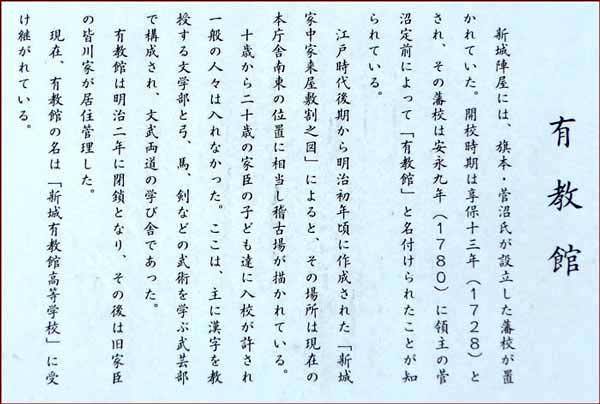 有教館
新城陣屋には、旗本・菅沼氏が設立した藩校が置
かれていた。開校時期は享保十三年（1728）と
され、その藩校は安永九年（1780）に領主の菅
沼定前によって「有教館」と名付けられたことが知
られている。
江戸時代後期から明治初年頃に作成された「新城
家中家来屋敷割之図」によると、その場所は現在の
本庁舎南東の位置に相当し稽古場が描かれている。
十歳から二十歳の家臣の子ども達に入校が許され
一般の人々は入れなかった。ここは、主に漢字を教
授する文学部と弓、馬、剣などの武術を学ぶ武芸部
で構成され、文武両道の学び舎であった。
有教館は明治二年に閉鎖となり、その後は旧家臣
の皆川家が居住管理した。
現在、有教館の名は「新城有教館高等学校」に受
け継がれている。